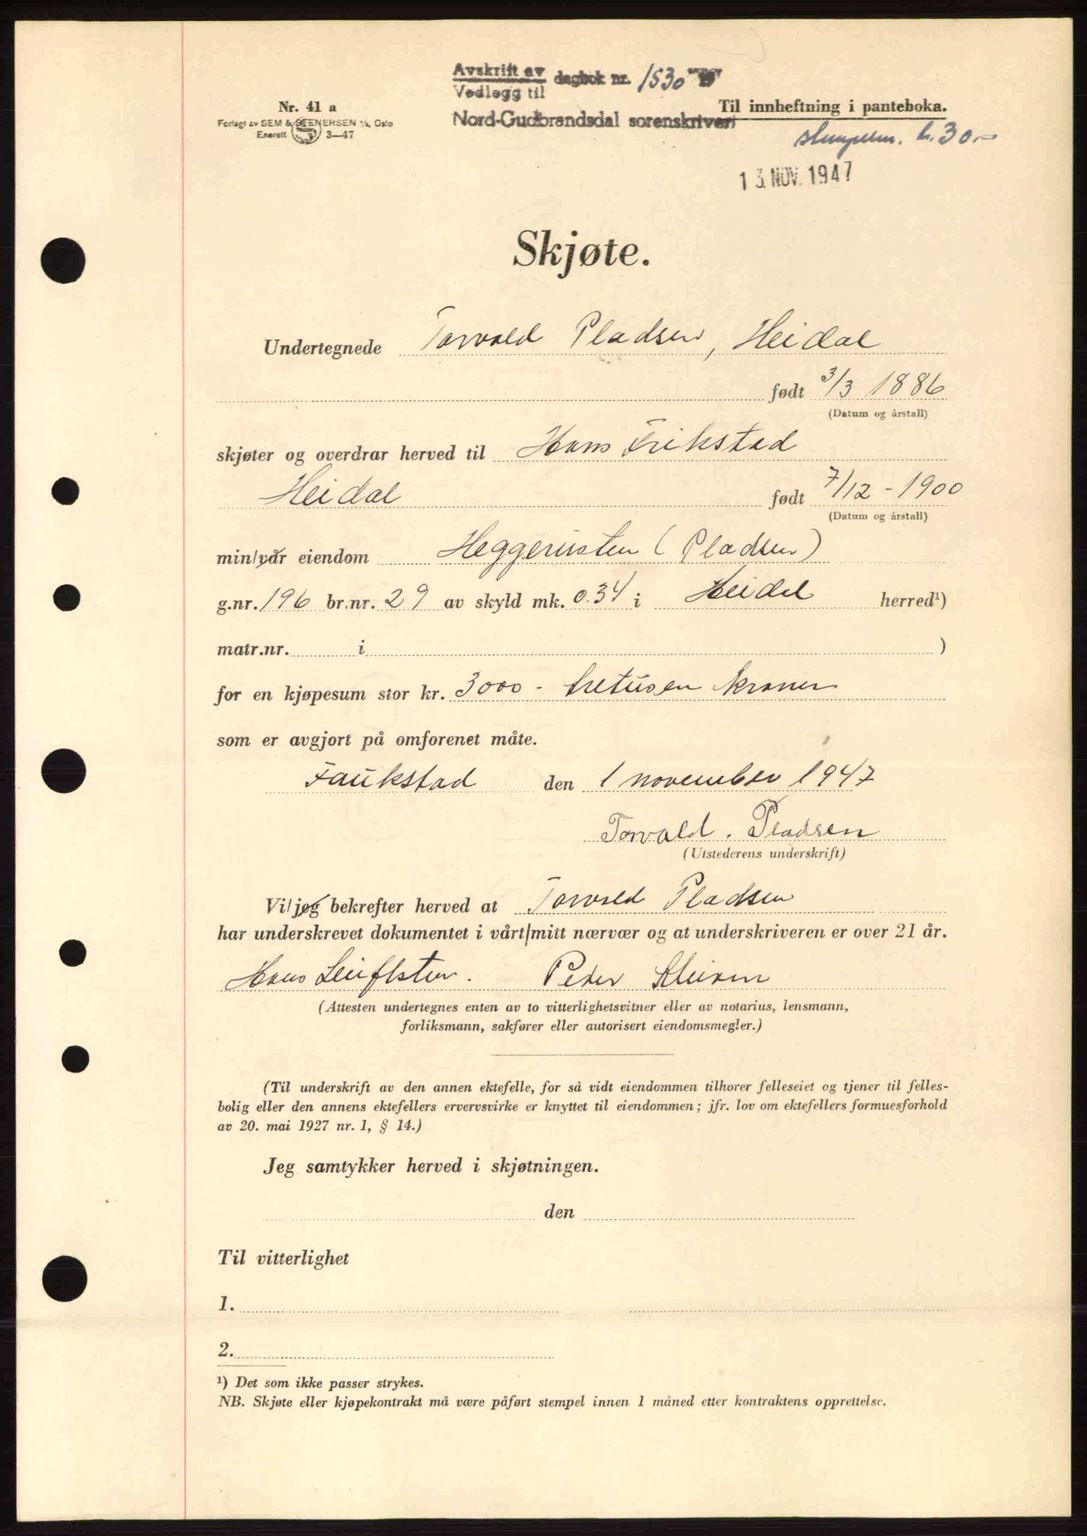 Avskrift av
Vedlegg til
dagbok nr. 1530
Nord-Gudbrandsdal sorenskriveri
Nr. 41 a
Forlagt av SEM & STENERSEN A/S, Oslo
Enerett 3—47
Til innheftning i panteboka.
stempelm. kr. 30.-
13. NOV. 1947
Skjøte.
Undertegnede Torvald Pladsen, Heidal
født 3/3 1886
(Datum og årstall)
skjøter og overdrar herved til Hans Frikstad
Heidal født 7/12 - 1900
(Datum og årstall)
min/vår eiendom Heggerusten (Pladsen)
g.nr. 196 br.nr. 29 av skyld mk. 0.34 i Heidal herred¹)
matr.nr. i )
for en kjøpesum stor kr. 3000 - tretusen kroner
som er avgjort på omforenet måte.
Faukstad den 1 november 1947
Torvald. Pladsen
(Utstederens underskrift)
Vi/jeg bekrefter herved at Torvald Pladsen
har underskrevet dokumentet i vårt/mitt nærvær og at underskriveren er over 21 år.
Hans Peter
(Attesten undertegnes enten av to vitterlighetsvitner eller av notarius, lensmann,
forliksmann, sakfører eller autorisert eiendomsmegler.)
(Til underskrift av den annen ektefelle, for så vidt eiendommen tilhorer felleseiet og tjener til felles-
bolig eller den annens ektefellers ervervsvirke er knyttet til eiendommen; jfr. lov om ektefellers formuesforhold
av 20. mai 1927 nr. 1, § 14.)
Jeg samtykker herved i skjøtningen.
den
Til vitterlighet
1.
2.
¹) Det som ikke passer strykes.
NB. Skjøte eller kjøpekontrakt må være påført stempel innen 1 måned etter kontraktens opprettelse.